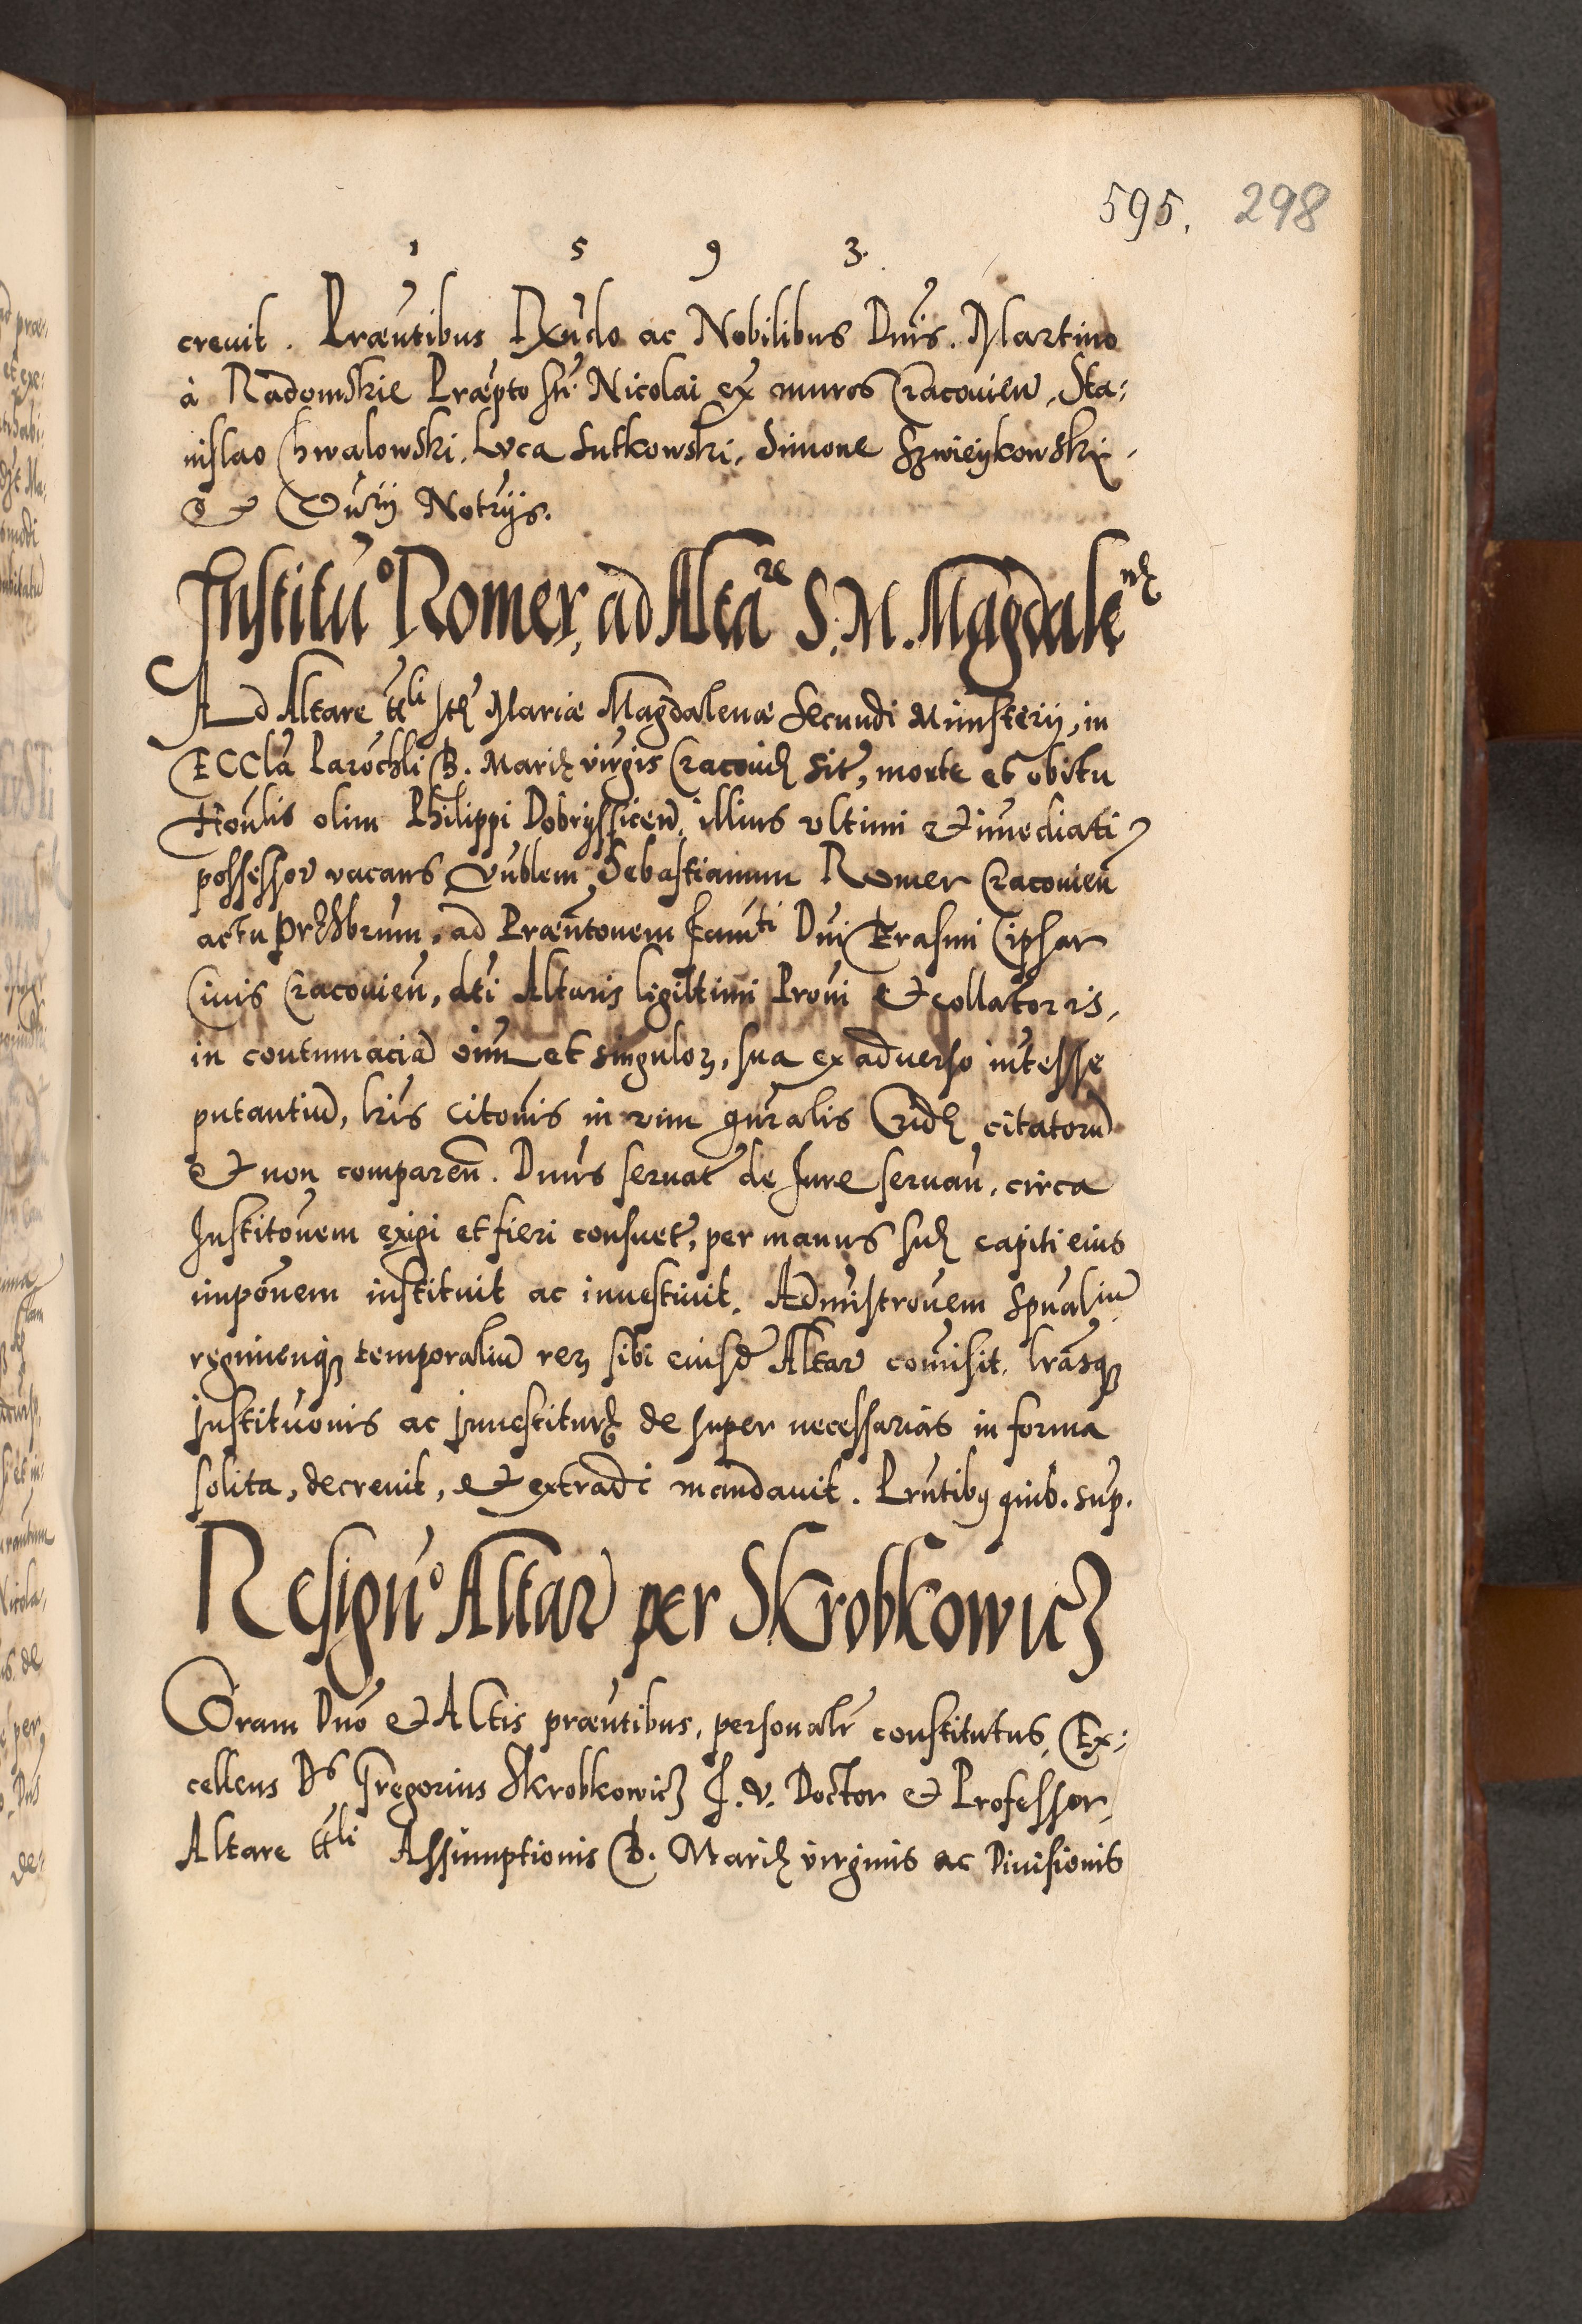 595. 298
1 5 9 3.
crevit. Præntibus Rxndo ac Nobilibus Dnis. Martino
à Radomskie Præpto Sti Nicolai ex muros Cracovien, Sta:
nislao Chwalowski, Luca Lutkowski, Simone Szwieykowski,
et Curij Notrijs.
Institũo Romer, ad Altãre S. M. Magdalenę
Ad Altare ttli Stę Mariæ Magdalenæ Secundi Ministerij, in
Ecclã Parochli B. Marię virgis Cracovię sit, morte et obitu
Honlis olim Philippi Dobryssicen, illius ultimi et imediati
possessor vacans Venblem Sebastianum Romer Cracovien
actu prẽsbrum, ad Præntonem Famti Dni Erasmi Cipsar
Civis Cracovien, dti Altaris ligittimi Proni et collatoris,
in contumaciã oim et singulor, sua ex adverso intesse
putantiũ, lris citonis in vim gnralis Cridę citatorũ
et non comparen. Dnus servat de Jure servan, circa
Institonem exigi et fieri consuet, per manus suę capiti eius
imponem instituit ac investivit. Admistronem Spualiũ
regimenq temporaliũ rer sibi eiusd Altar comisit. lrasq
Institutonis ac Investiturę de super necessarias in forma
solita, decrevit, et extradi mandavit. Prntibq quib. sup.
Resignõ Altar per Skrobkowicz
Coram Dno et Actis præntibus, personalr constitutus, Ex:
cellens Ds Gregorius Skrobkowicz J. V. Doctor et Professor,
Altare ttli Assumptionis B. Marię virginis ac Divisionis